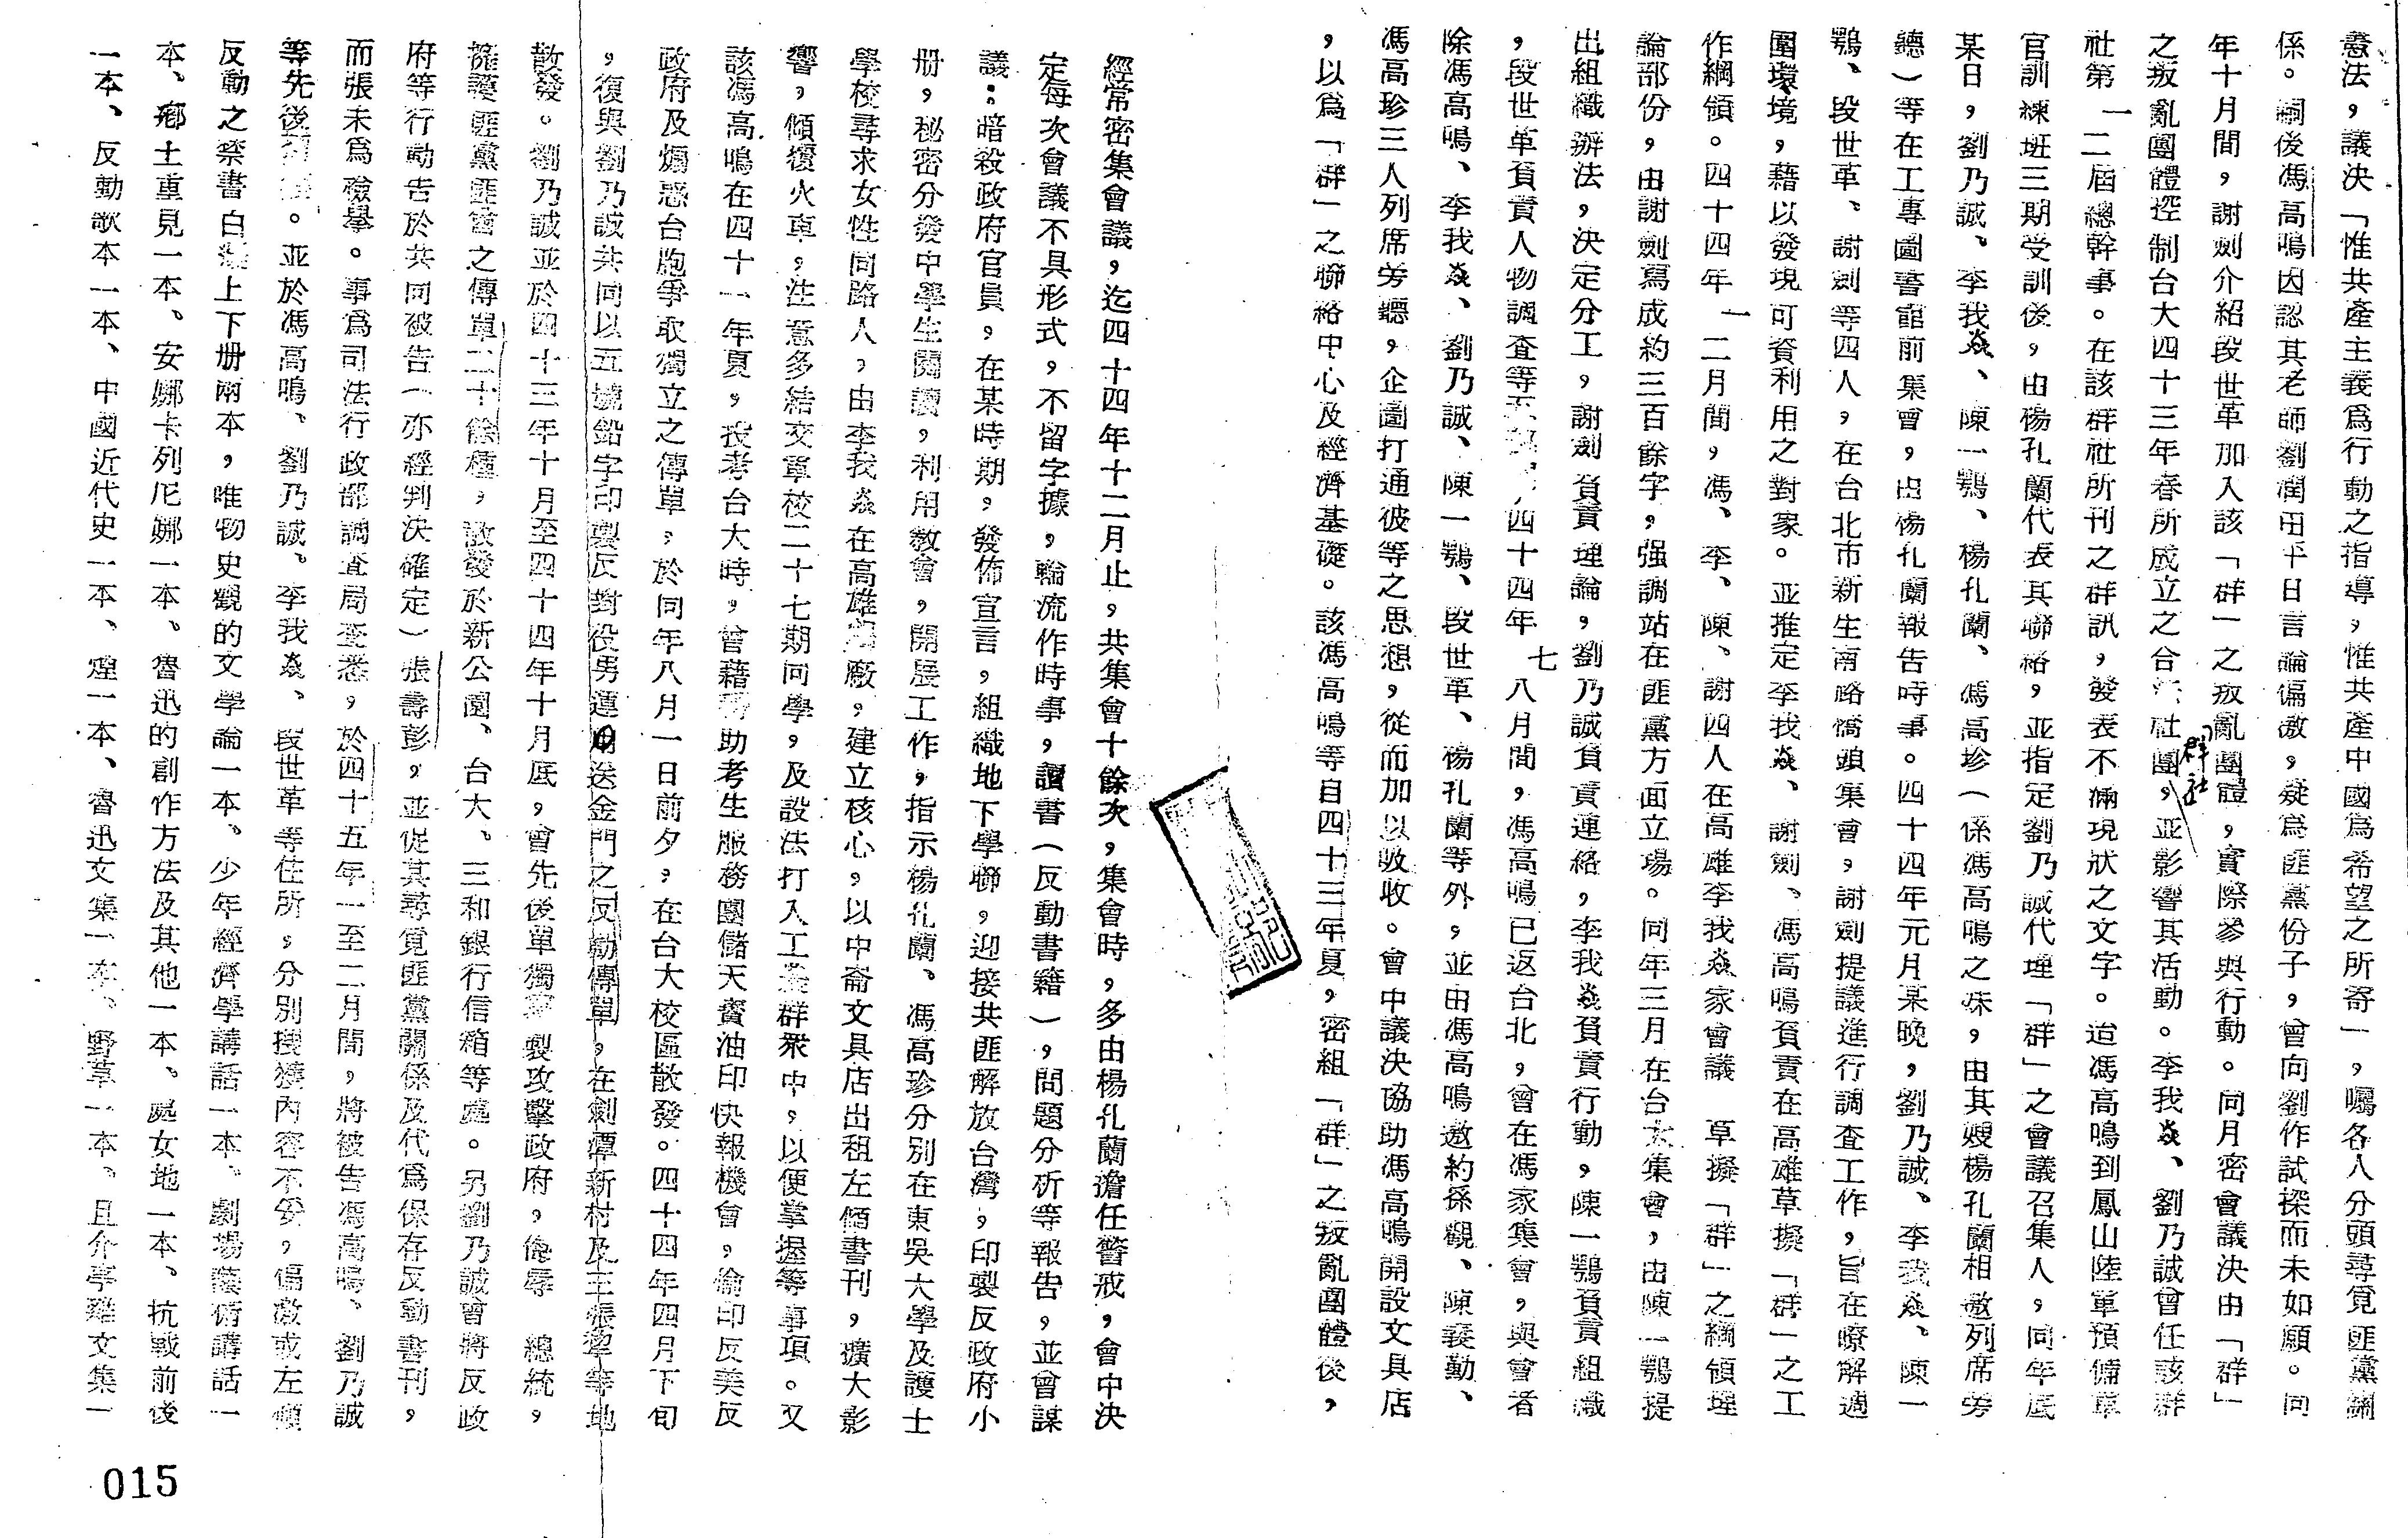 意法，議決「惟共產主義爲行動之指導，惟共產中國爲希望之所寄」，囑各人分頭尋覓匪黨關
係。嗣後馮高鳴因認其老師劉潤田平日言論偏激，疑爲匪黨份子，曾向劉作試探而未如願。同
年十月間，謝劍介紹段世革加入該「群」之叛亂團體，實際參與行動。同月密會議決由「群」
之叛亂團體控制台大四十三年春所成立之合法社團，並影響其活動。李我焱、劉乃誠曾任該群
群社
社第一二屆總幹事。在該群社所刊之群訊，發表不滿現狀之文字。迨馮高鳴到鳳山陸軍預備軍
官訓練班三期受訓後，由楊孔蘭代表其聯絡，並指定劉乃誠代理「群」之會議召集人，同年底
某日，劉乃誠、李我焱、陳一鶚、楊孔蘭、馮高珍（係馮高鳴之妹，由其嫂楊孔蘭相邀列席旁
聽）等在工專圖書館前集會，由楊孔蘭報告時事。四十四年元月某晚，劉乃誠、李我焱、陳一
鶚、段世革、謝劍等四人，在台北市新生南路橋頭集會，謝劍提議進行調查工作，旨在瞭解週
圍環境，藉以發現可資利用之對象。並推定李我焱、謝劍、馮高鳴負責在高雄草擬「群」之工
作綱領。四十四年一二月間，馮、李、陳、謝四人在高雄李我焱家會議　草擬「群」之綱領理
論部份，由謝劍寫成約三百餘字，强調站在匪黨方面立場。同年三月在台大集會，由陳一鶚提
出組織辦法，決定分工，謝劍負責理論，劉乃誠負責連絡，李我焱負責行動，陳一鶚負責組織
，段世革負責人物調查等，四十四年七八月間，馮高鳴已返台北，曾在馮家集會，與會者
除馮高鳴、李我焱、劉乃誠、陳一鶚、段世革、楊孔蘭等外，並由馮高鳴邀約孫觀、陳義勤、
馮高珍三人列席旁聽，企圖打通彼等之思想，從而加以吸收。會中議決協助馮高鳴開設文具店
，以爲「群」之聯絡中心及經濟基礎。該馮高鳴等自四十三年夏，密組「群」之叛亂團體後，
經常密集會議，迄四十四年十二月止，共集會十餘次，集會時，多由楊孔蘭擔任警戒，會中決
定每次會議不具形式，不留字據，輪流作時事，讀書（反動書籍），問題分析等報告，並曾謀
議：暗殺政府官員，在某時期，發佈宣言，組織地下學聯，迎接共匪解放台灣，印製反政府小
册，秘密分發中學生閱讀，利用教會，開展工作，指示楊孔蘭、馮高珍分別在東吳大學及護士
學校尋求女性同路人，由李我焱在高雄廠，建立核心，以中崙文具店出租左傾書刊，擴大影
響，傾覆火車，注意多結交軍校二十七期同學，及設法打入工業群衆中，以便掌握等事項。又
該馮高鳴在四十一年夏，投考台大時，曾藉協助考生服務團儲天賚油印快報機會，偷印反美反
政府及煽惑台胞爭取獨立之傳單，於同年八月一日前夕，在台大校區散發。四十四年四月下旬
，復與劉乃誠共同以五號鉛字印製反對役男運送金門之反動傳單，在劍潭新村及王張犂等地
散發。劉乃誠並於四十三年十月至四十四年十月底，曾先後單獨寫製攻擊政府，侮辱　總統，
擁護匪黨匪酋之傳單二十餘種，散發於新公園、台大、三和銀行信箱等處。另劉乃誠曾將反政
府等行動告於共同被告（亦經判決確定）張壽彭，並促其尋覓匪黨關係及代爲保存反動書刊，
而張未爲檢舉。事爲司法行政部調查局查悉，於四十五年一至二月間，將被告馮高鳴、劉乃誠
等先後。並於馮高鳴、劉乃誠、李我焱、段世革等住所，分別搜獲內容不妥，偏激或左傾
反動之禁書白上下册兩本，唯物史觀的文學論一本、少年經濟學講話一本、劇場藝術講話一
本、鄉土重見一本、安娜卡列尼娜一本、魯迅的創作方法及其他一本、處女地一本、抗戰前後
一本、反動歌本一本、中國近代史一本、煙一本、魯迅文集一本、野草一本、且介亭雜文集一
015